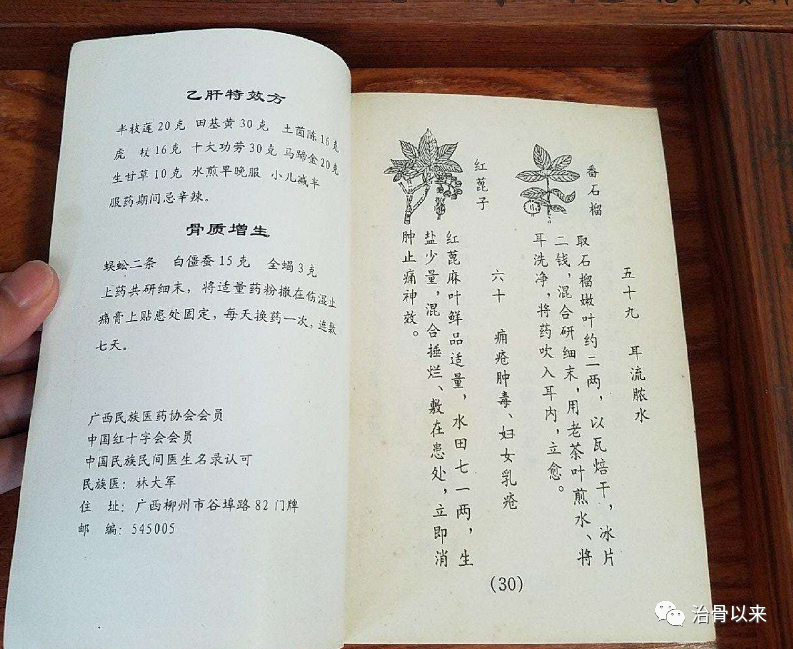 乙肝特效方
半枝莲20克 田基黄30克 土茵陈16克
虎 杖16克 十大功劳30克 马蹄金20克
生甘草10克 水煎早晚服 小儿减半
服药期间忌辛辣。
骨质增生
蜈蚣二条 白僵蚕15克 全蝎3克
上药共研细末，将适量药粉撒在伤湿止
痛膏上贴患处固定，每天换药一次，连敷
七天。
广西民族医药协会会员
中国红十字会会员
中国民族民间医生名录认可
民族医：林大军
住 址：广西柳州市谷埠路82门牌
邮 编：545005
五十九 耳流脓水
番石榴
取石榴嫩叶约二两，以瓦焙干，冰片
二钱，混合研细末，用老茶叶煎水、将
耳洗净，将药吹入耳内，立愈。
六十 痈疮肿毒、妇女乳疮
红蓖子
红蓖麻叶鲜品适量，水田七一两，生
盐少量，混合捶烂、敷在患处，立即消
肿止痛神效。
(30)
治骨以来